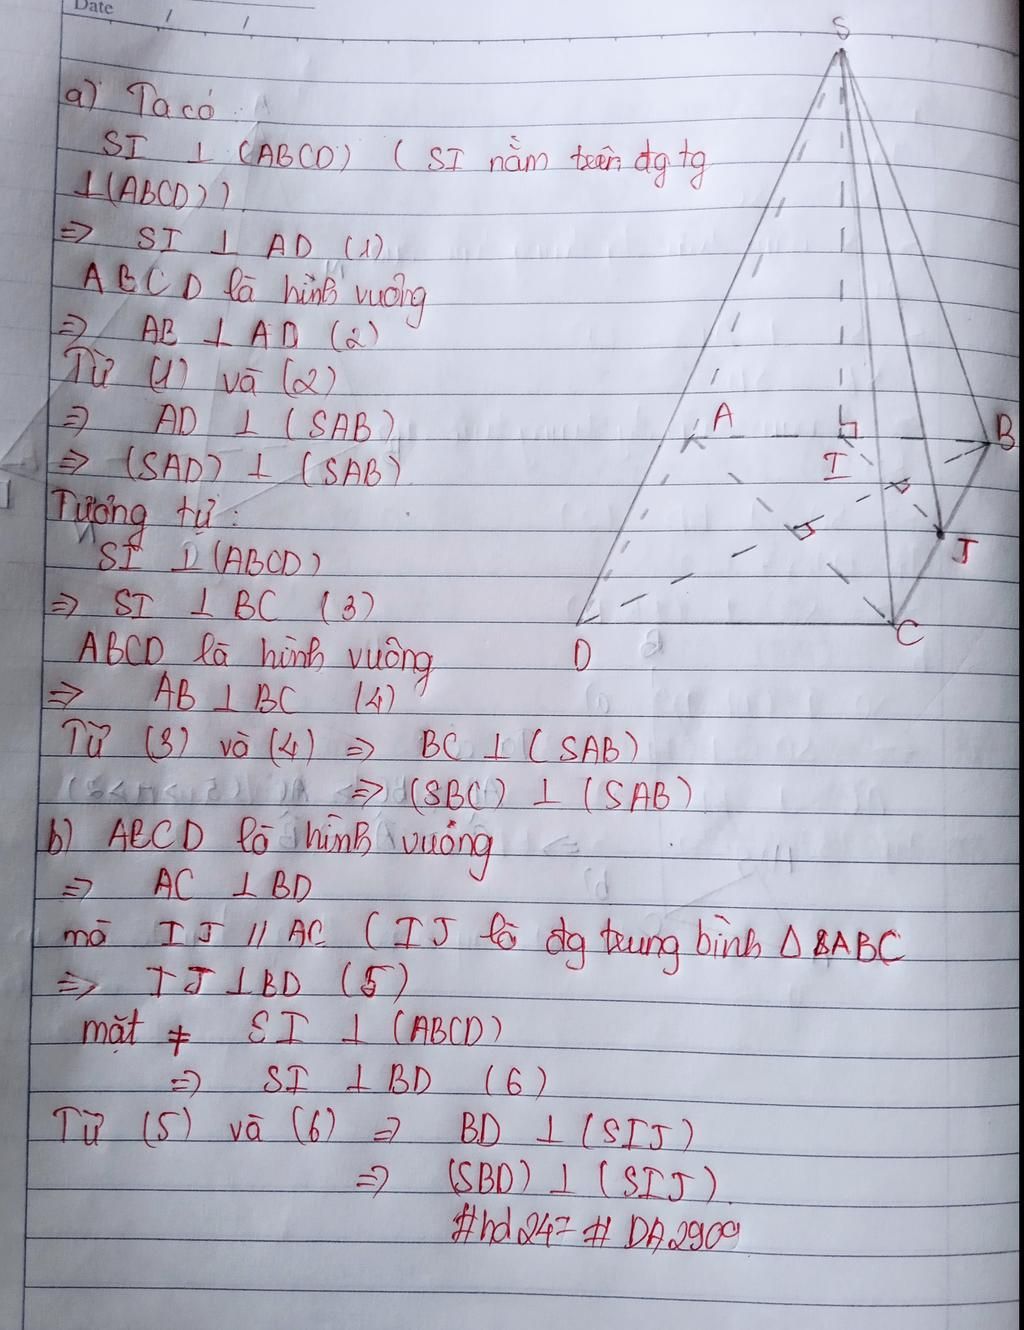 Date / /
a) Ta có
SI ⊥ (ABCD) ( SI nằm trên đg tg
⊥(ABCD))
=> SI ⊥ AD (1)
ABCD là hình vuông
=> AB ⊥ AD (2)
Từ (1) và (2)
=> AD ⊥ (SAB)
=> (SAD) ⊥ (SAB)
Tương tự :
SI ⊥ (ABCD)
=> SI ⊥ BC (3)
ABCD là hình vuông
=> AB ⊥ BC (4)
Từ (3) và (4) => BC ⊥ (SAB)
=> (SBC) ⊥ (SAB)
b) ABCD là hình vuông
=> AC ⊥ BD
mà IJ // AC ( IJ là đg trung bình Δ BABC
=> IJ ⊥ BD (5)
mặt ≠ SI ⊥ (ABCD)
=> SI ⊥ BD (6)
Từ (5) và (6) => BD ⊥ (SIJ)
=> (SBD) ⊥ (SIJ).
#hd247 # DA2909
S
A
B
I
J
D
C